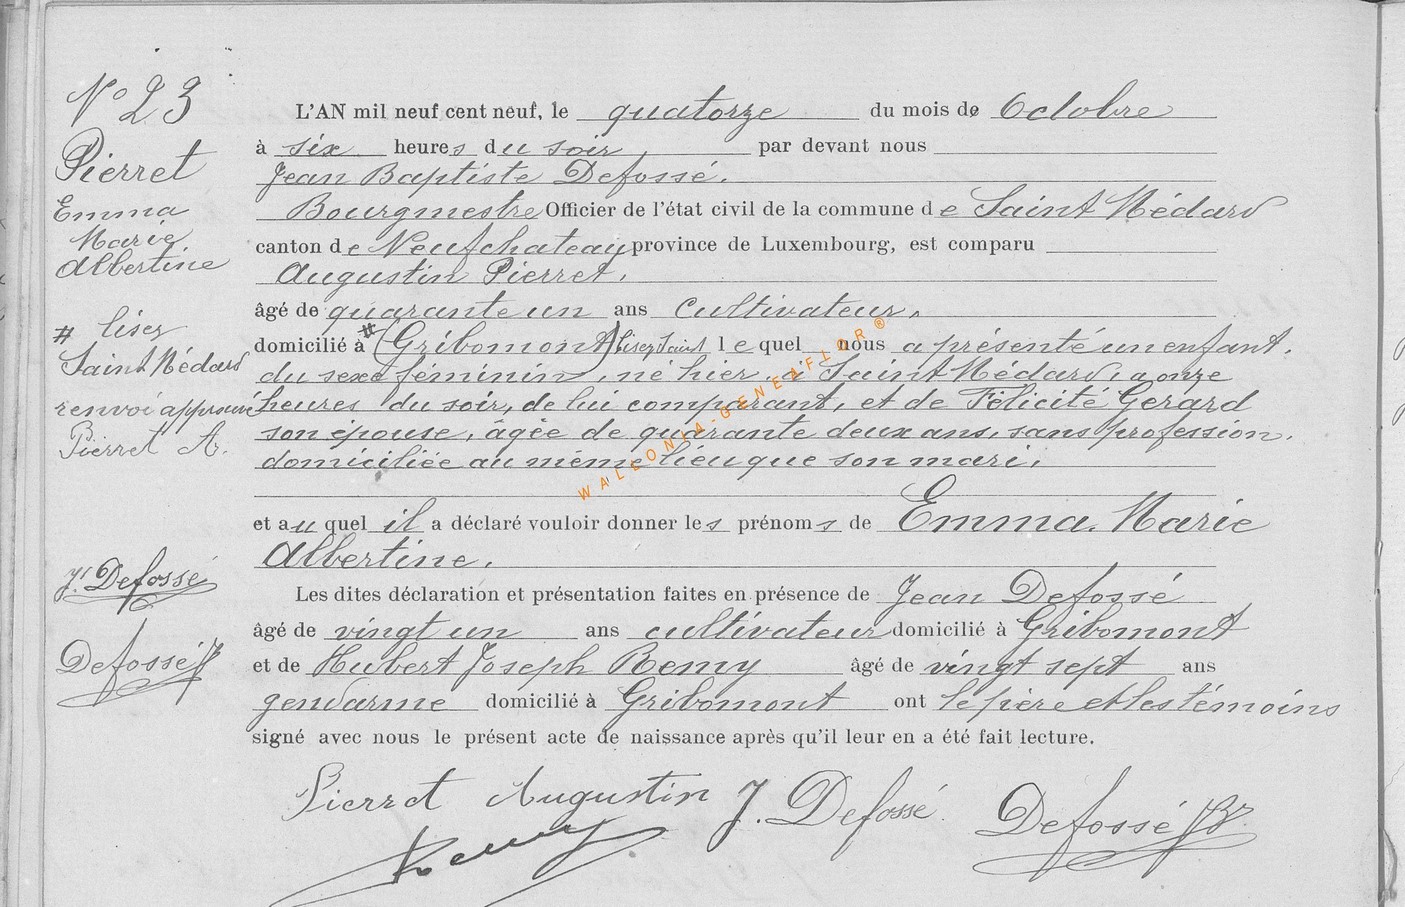 N° 23
Pierret
Emma
Marie
Albertine
# lisez
Saint Médard
renvoi approuvé
Pierret A.
J. Defossé
Defossé JB
L'AN mil neuf cent neuf, le quatorze du mois de Octobre
à six heures du soir, par devant nous
Jean Baptiste Defossé.
Bourgmestre Officier de l'état civil de la commune de Saint Médard
canton de Neufchateau province de Luxembourg, est comparu
Augustin Pierret,
âgé de quarante un ans cultivateur,
domicilié à # (Gribomont) lisez Saint lequel nous a présenté un enfant.
du sexe féminin, né hier, à Saint Médard, a onze
heures du soir, de lui comparant, et de Félicité Gerard
son épouse, âgée de quarante deux ans, sans profession.
domiciliée au même lieu que son mari,
et auquel il a déclaré vouloir donner les prénoms de Emma. Marie
Albertine.
Les dites déclaration et présentation faites en présence de Jean Defossé
âgé de vingt un ans cultivateur domicilié à Gribomont
et de Hubert Joseph Remy âgé de vingt sept ans
gendarme domicilié à Gribomont ont le père et les témoins
signé avec nous le présent acte de naissance après qu'il leur en a été fait lecture.
Pierret Augustin J. Defossé. Defossé JB.
Remy
WALLONIA-GENEAFLOR®